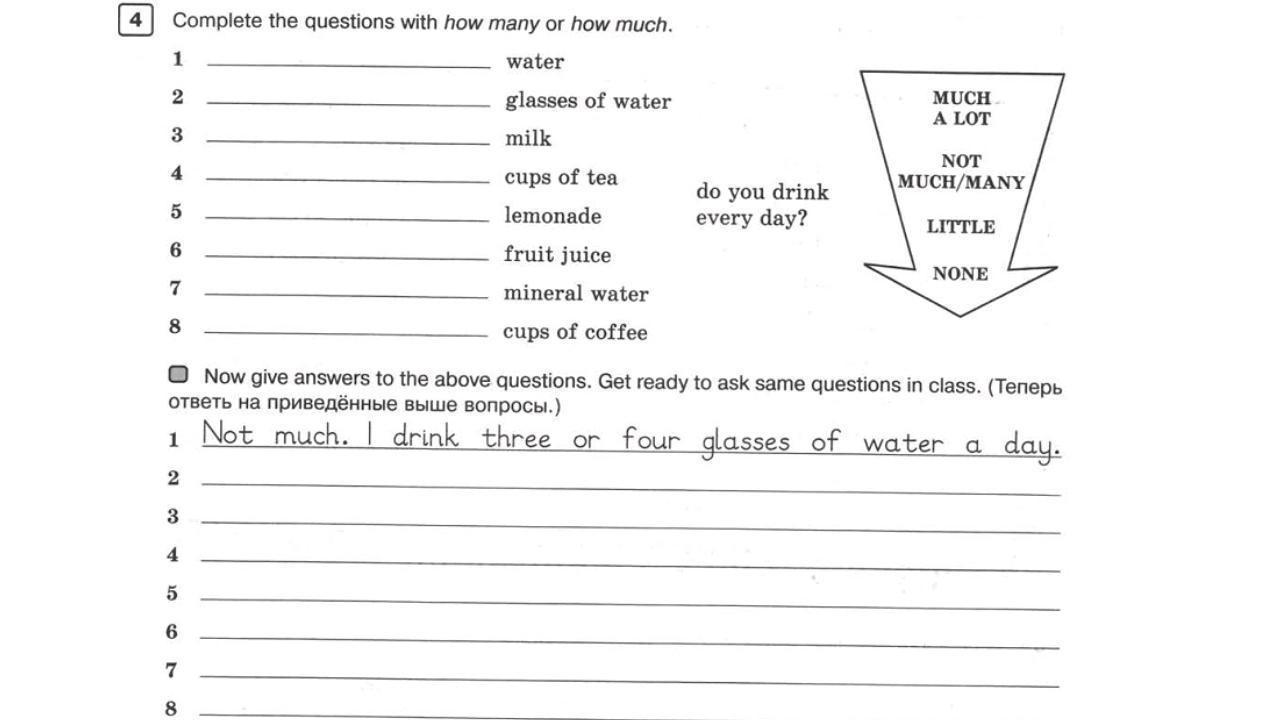 4 Complete the questions with how many or how much.
1 ______ water
2 ______ glasses of water
3 ______ milk
4 ______ cups of tea
5 ______ lemonade
6 ______ fruit juice
7 ______ mineral water
8 ______ cups of coffee
do you drink
every day?
MUCH
A LOT
NOT
MUCH/MANY
LITTLE
NONE
Now give answers to the above questions. Get ready to ask same questions in class. (Теперь
ответь на приведённые выше вопросы.)
1 Not much. I drink three or four glasses of water a day.
2
3
4
5
6
7
8